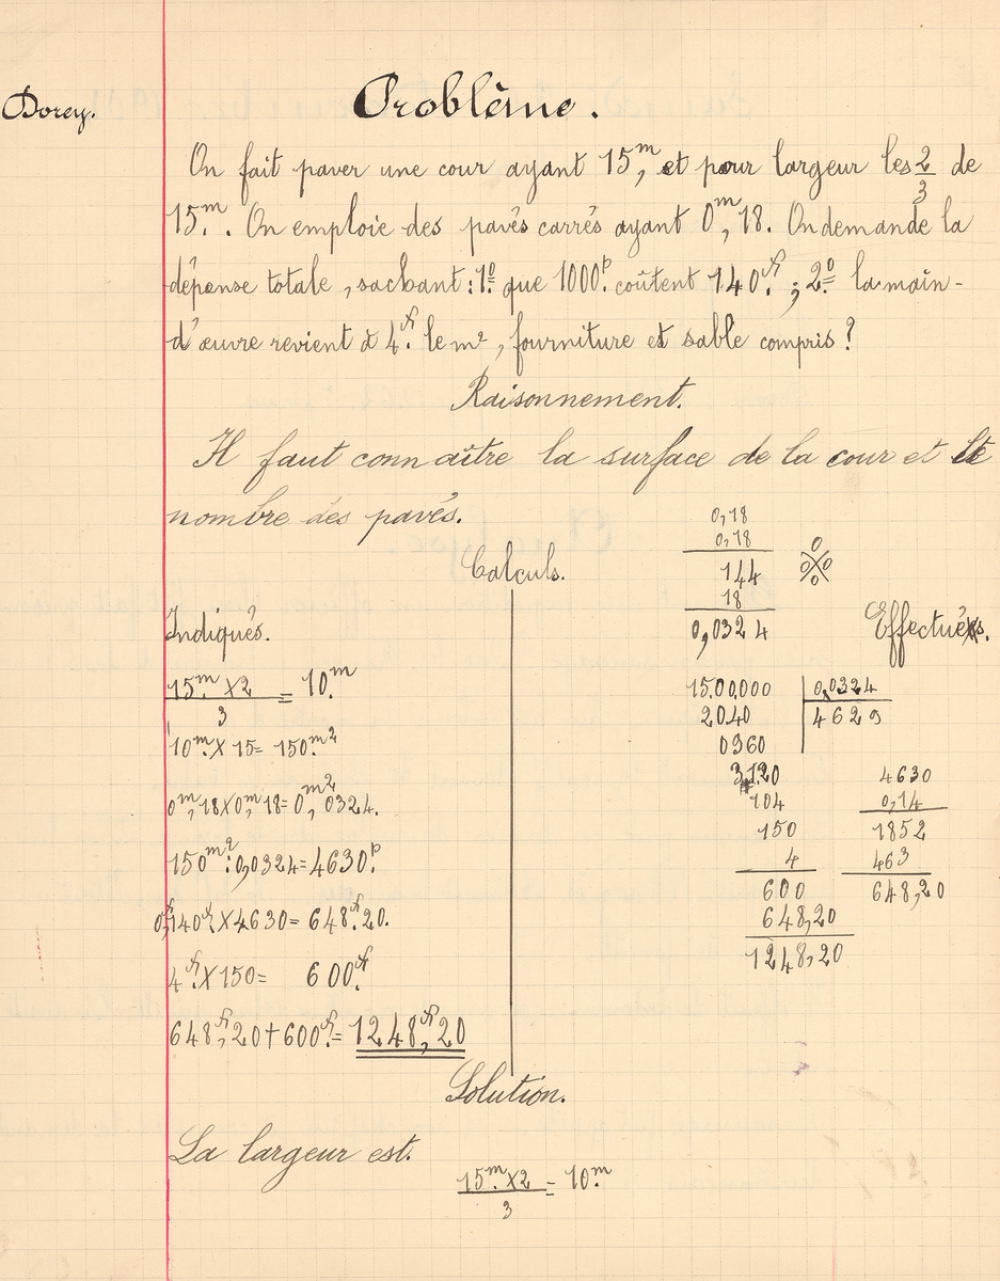 Dorey.
Problême.
On fait paver une cour ayant 15,ᵐ et pour largeur les 2/3 de
15.ᵐ. On emploie des pavés carrés ayant 0,ᵐ18. On demande la
dépense totale, sachant : 1º que 1000ᵖ. coûtent 140.ᶠʳ ; 2º la main-
d'œuvre revient à 4.ᶠʳ le m², fourniture et sable compris ?
Raisonnement.
Il faut connaître la surface de la cour et le
nombre des pavés.
Calculs.
Indiqués.
15.ᵐ x2 / 3 = 10.ᵐ
10ᵐ. X 15 = 150.ᵐ²
0,ᵐ18 X 0,ᵐ18 = 0,ᵐ²0324.
150ᵐ² : 0,0324 = 4630.ᵖ
0,ᶠʳ140 X 4630 = 648.ᶠʳ20.
4.ᶠʳ X 150 = 600.ᶠʳ
648,ᶠʳ20 + 600.ᶠʳ = 1248,ᶠʳ20
Effectués.
0,18
0,18
144
18
0,0324
0
0 0
0
15.00.000 | 0,0324
2040 | 4629
0960
3120
104
150
4
600
648,20
1248,20
4630
0,14
1852
463
648,20
Solution.
La largeur est.
15.ᵐ x2 / 3 = 10.ᵐ